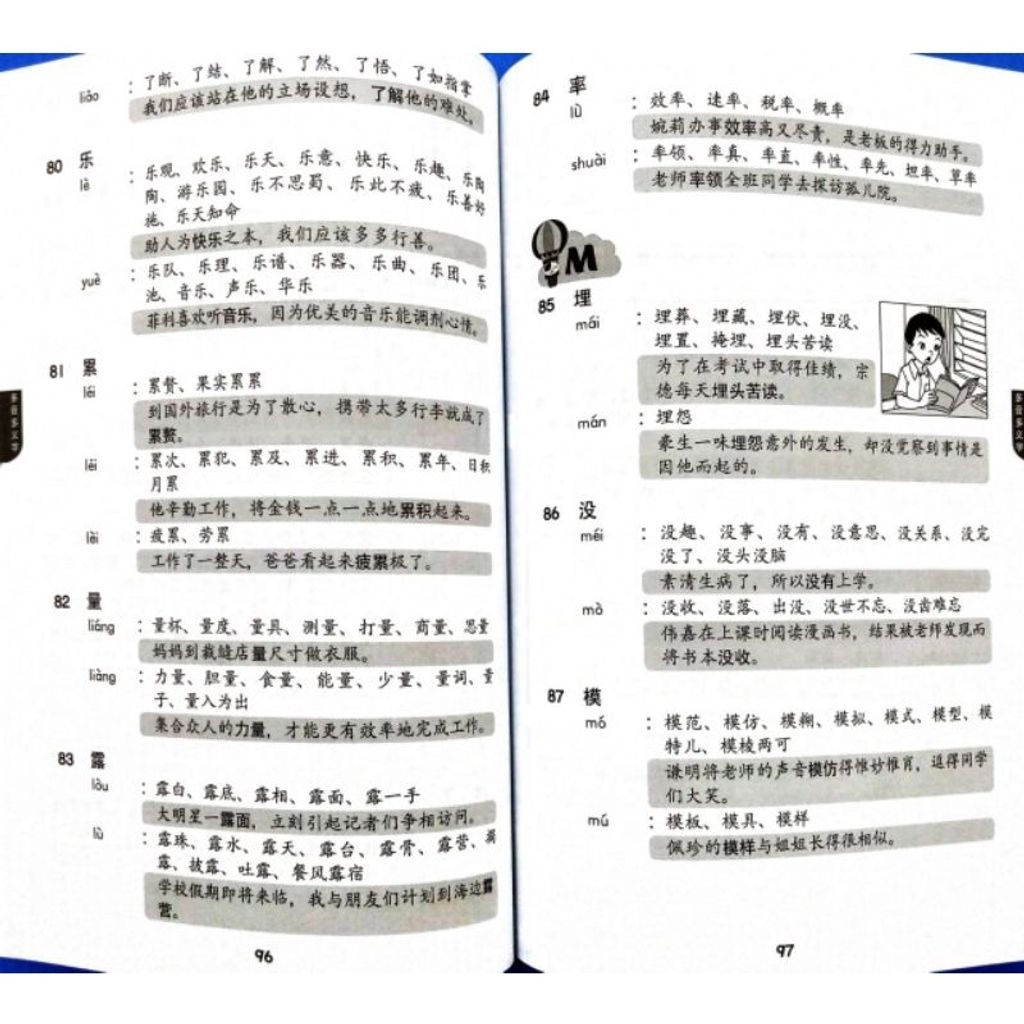 liǎo ：了断、了结、了解、了然、了悟、了如指掌
我们应该站在他的立场设想，了解他的难处。
80 乐
lè ：乐观、欢乐、乐天、乐意、快乐、乐趣、乐陶
陶、游乐园、乐不思蜀、乐此不疲、乐善好
施、乐天知命
助人为快乐之本，我们应该多多行善。
yuè ：乐队、乐理、乐谱、乐器、乐曲、乐团、乐
池、音乐、声乐、华乐
菲利喜欢听音乐，因为优美的音乐能调剂心情。
81 累
léi ：累赘、果实累累
到国外旅行是为了散心，携带太多行李就成了
累赘。
lěi ：累次、累犯、累及、累进、累积、累年、日积
月累
他辛勤工作，将金钱一点一点地累积起来。
lèi ：疲累、劳累
工作了一整天，爸爸看起来疲累极了。
82 量
liáng ：量杯、量度、量具、测量、打量、商量、思量
妈妈到裁缝店量尺寸做衣服。
liàng ：力量、胆量、食量、能量、少量、量词、量
子、量入为出
集合众人的力量，才能更有效率地完成工作。
83 露
lòu ：露白、露底、露相、露面、露一手
大明星一露面，立刻引起记者们争相访问。
lù ：露珠、露水、露天、露台、露骨、露营、凝
露、披露、吐露、餐风露宿
学校假期即将来临，我与朋友们计划到海边露
营。
96
84 率
lǜ ：效率、速率、税率、概率
婉莉办事效率高又尽责，是老板的得力助手。
shuài ：率领、率真、率直、率性、率先、坦率、草率
老师率领全班同学去探访孤儿院。
M
85 埋
mái ：埋葬、埋藏、埋伏、埋没、
埋置、掩埋、埋头苦读
为了在考试中取得佳绩，宗
德每天埋头苦读。
mán ：埋怨
豪生一味埋怨意外的发生，却没觉察到事情是
因他而起的。
86 没
méi ：没趣、没事、没有、没意思、没关系、没完
没了、没头没脑
素清生病了，所以没有上学。
mò ：没收、没落、出没、没世不忘、没齿难忘
伟嘉在上课时阅读漫画书，结果被老师发现而
将书本没收。
87 模
mó ：模范、模仿、模糊、模拟、模式、模型、模
特儿、模棱两可
谦明将老师的声音模仿得惟妙惟肖，逗得同学
们大笑。
mú ：模板、模具、模样
佩珍的模样与姐姐长得很相似。
97
多音多义字
多音多义字